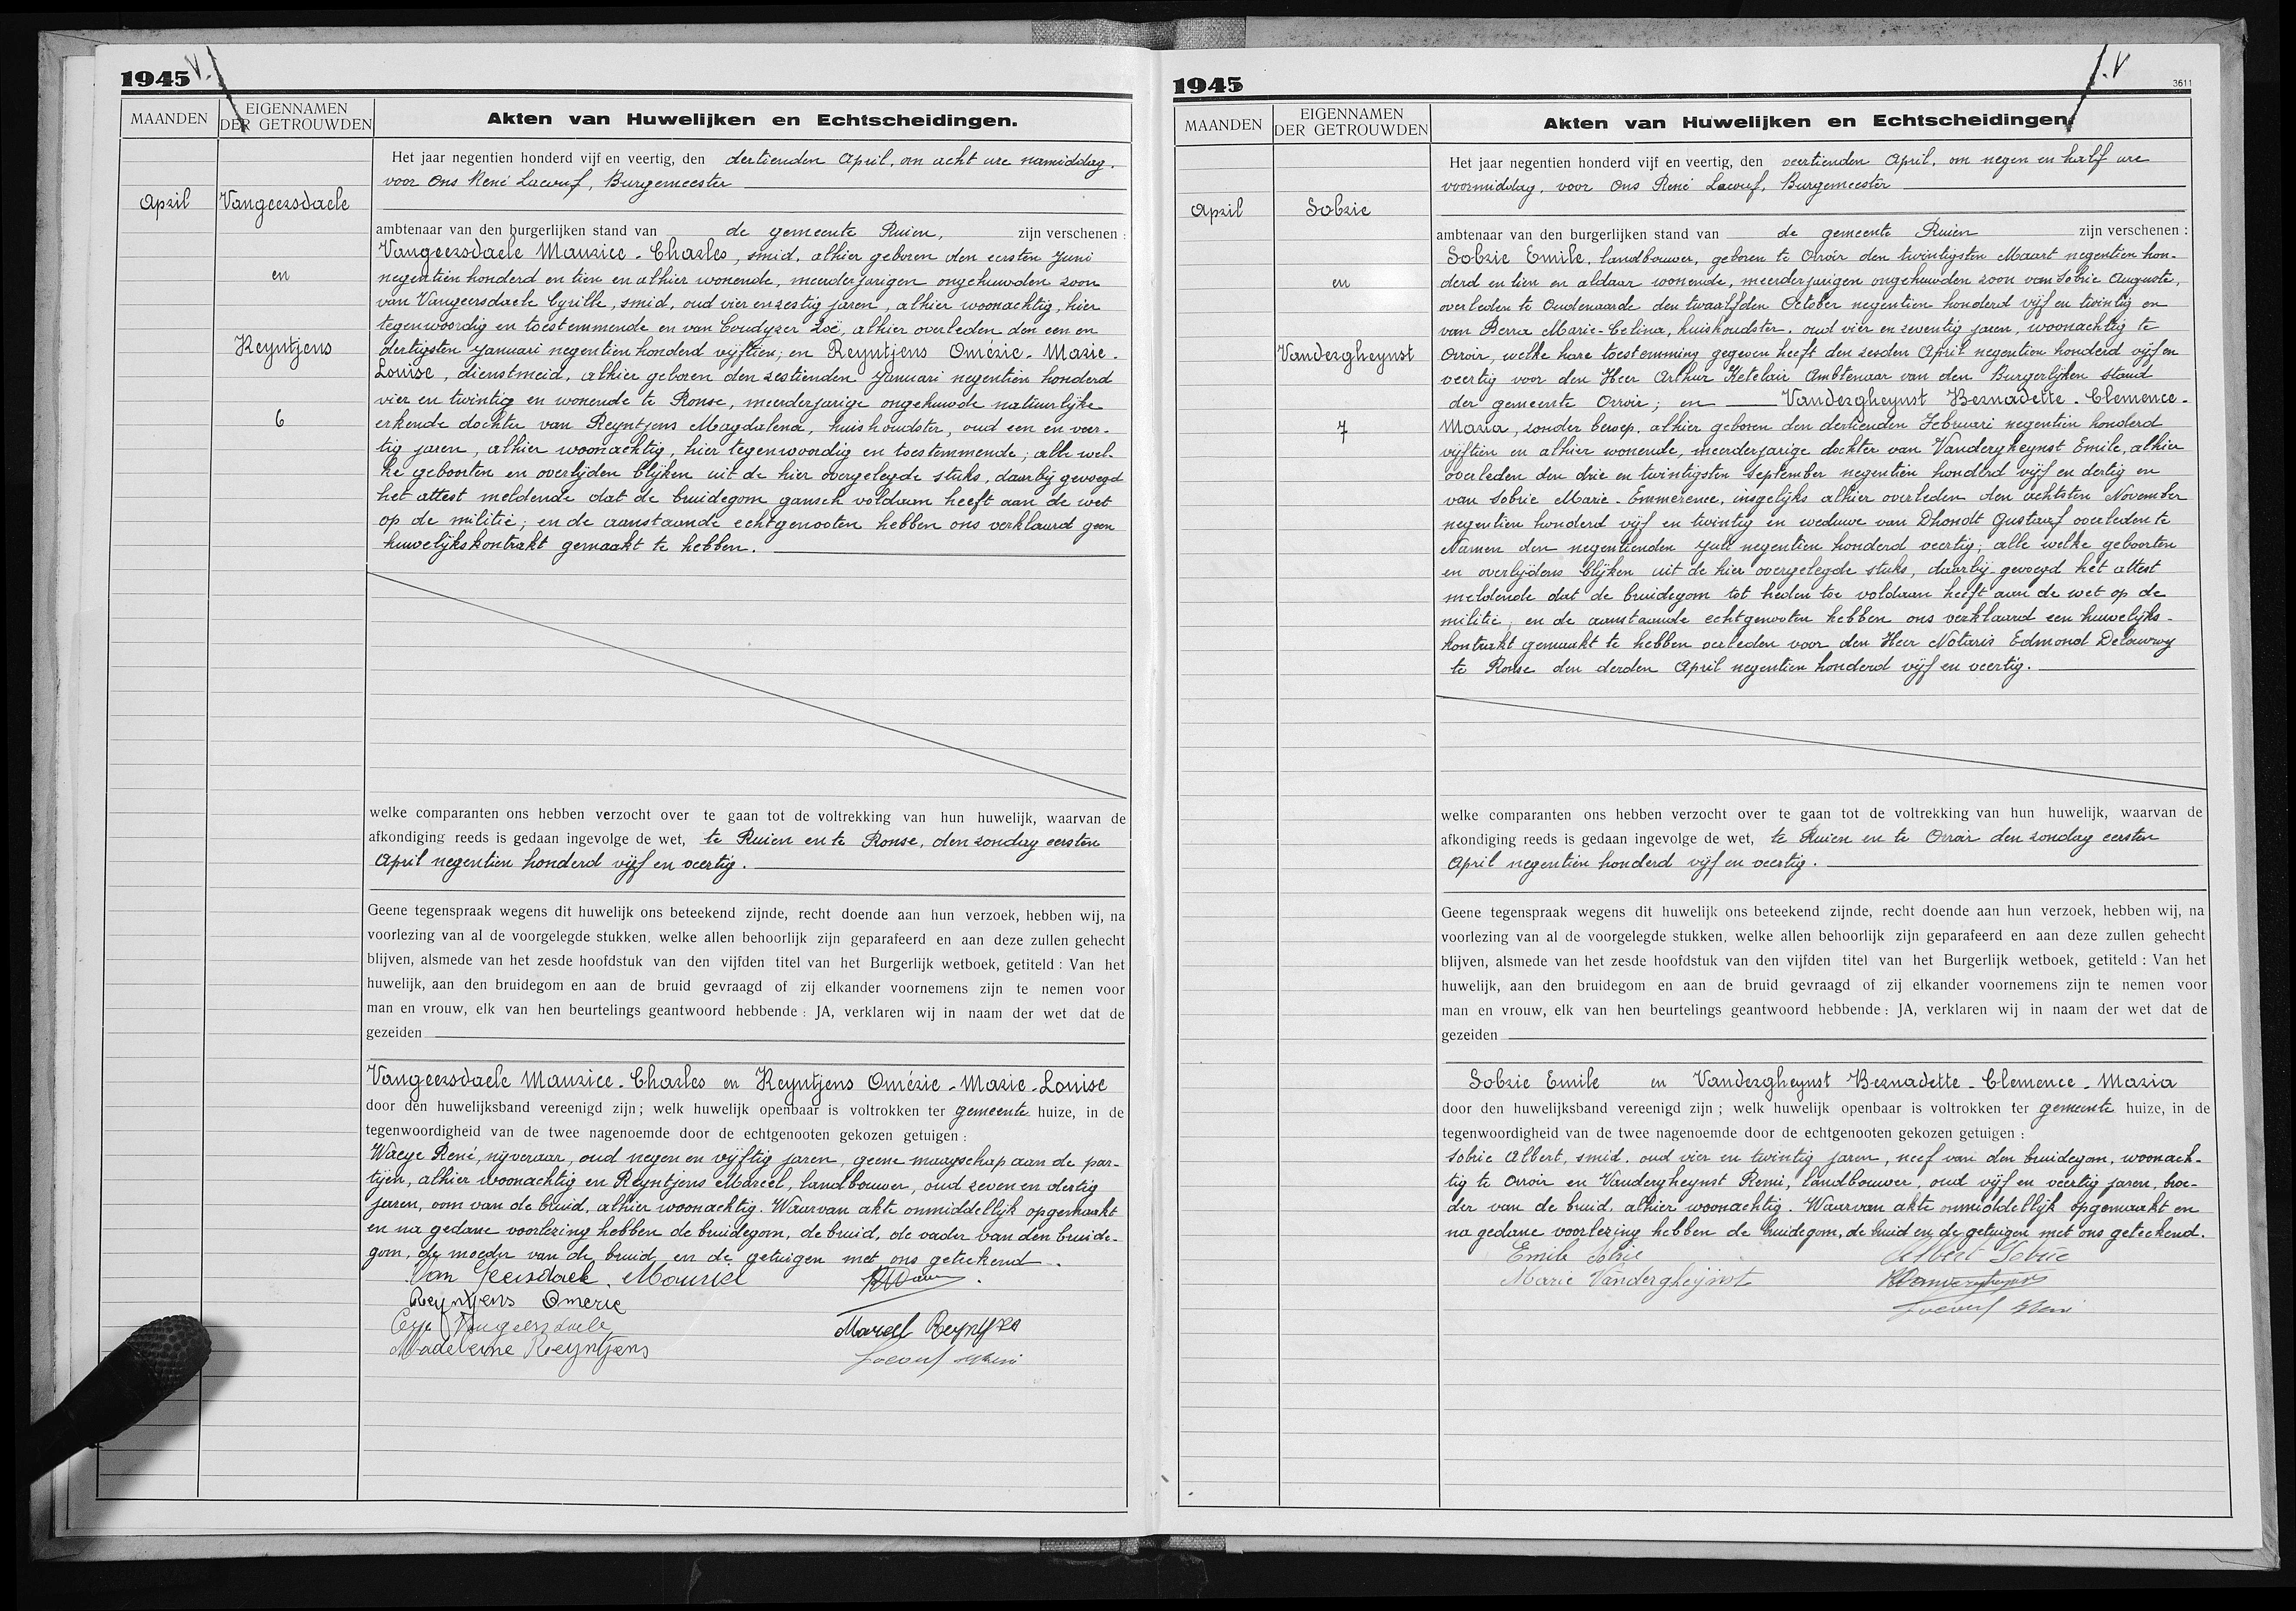 1945 V.
MAANDEN
EIGENNAMEN
DER GETROUWDEN
Akten van Huwelijken en Echtscheidingen.
April
Vangeersdaele
en
Reyntjens
6
Het jaar negentien honderd vijf en veertig, den dertienden April, om acht ure namiddag.
voor Ons René , Burgemeester
ambtenaar van den burgerlijken stand van de gemeente Ruien, zijn verschenen :
Vangeersdaele Maurice-Charles, smid, alhier geboren den eersten Juni
negentien honderd en tien en alhier wonende, meerderjarigen ongehuwden zoon
van Vangeersdaele Cyrille, smid, oud vier en zestig jaren, alhier woonachtig, hier
tegenwoordig en toestemmende en van Coudyzer Zoë, alhier overleden den een en
dertigsten Januari negentien honderd vijftien; en Reyntjens Omérie-Marie-
Louise, dienstmeid, alhier geboren den zestienden Januari negentien honderd
vier en twintig en wonende te Ronse, meerderjarige ongehuwde natuurlijke
erkende dochter van Reyntjens Magdalena, huishoudster, oud een en veer-
tig jaren, alhier woonachtig, hier tegenwoordig en toestemmende; alle wel-
ke geboorten en overlijden blijken uit de hier overgelegde stuks, daarbij gevoegd
het attest meldende dat de bruidegom gansch voldaan heeft aan de wet
op de militie; en de aanstaande echtgenooten hebben ons verklaard geen
huwelijkskontrakt gemaakt te hebben.
welke comparanten ons hebben verzocht over te gaan tot de voltrekking van hun huwelijk, waarvan de
afkondiging reeds is gedaan ingevolge de wet, te Ruien en te Ronse, den zondag eersten
April negentien honderd vijf en veertig.
Geene tegenspraak wegens dit huwelijk ons beteekend zijnde, recht doende aan hun verzoek, hebben wij, na
voorlezing van al de voorgelegde stukken, welke allen behoorlijk zijn geparafeerd en aan deze zullen gehecht
blijven, alsmede van het zesde hoofdstuk van den vijfden titel van het Burgerlijk wetboek, getiteld : Van het
huwelijk, aan den bruidegom en aan de bruid gevraagd of zij elkander voornemens zijn te nemen voor
man en vrouw, elk van hen beurtelings geantwoord hebbende : JA, verklaren wij in naam der wet dat de
gezeiden
Vangeersdaele Maurice-Charles en Reyntjens Omérie-Marie-Louise
door den huwelijksband vereenigd zijn ; welk huwelijk openbaar is voltrokken ter gemeente huize, in de
tegenwoordigheid van de twee nagenoemde door de echtgenooten gekozen getuigen :
Waeye René, nijveraar, oud negen en vijftig jaren, geene maagschap aan de par-
tijen, alhier woonachtig en Reyntjens Marcel, landbouwer, oud zeven en dertig
jaren, oom van de bruid, alhier woonachtig. Waarvan akte onmiddellijk opgemaakt
en na gedane voorlezing hebben de bruidegom, de bruid, de vader van den bruide-
gom, de moeder van de bruid en de getuigen met ons geteekend.
Van Geersdaele Maurice
Reyntjens Omerie
Vangeersdaele
Madeleine Reyntjens
Marcel Reyntjens
1945
/.V
3611
MAANDEN
EIGENNAMEN
DER GETROUWDEN
Akten van Huwelijken en Echtscheidingen.
April
Sobrie
en
Vandergheynst
7
Het jaar negentien honderd vijf en veertig, den veertienden April, om negen en half ure
voormiddag, voor Ons René , Burgemeester
ambtenaar van den burgerlijken stand van de gemeente Ruien zijn verschenen :
Sobrie Emile, landbouwer, geboren te Orroir den twintigsten Maart negentien hon-
derd en tien en aldaar wonende, meerderjarigen ongehuwden zoon van Sobrie Auguste,
overleden te Oudenaarde den twaalfden October negentien honderd vijf en twintig en
van Berra Marie-Celina, huishoudster, oud vier en zeventig jaren, woonachtig te
Orroir, welke hare toestemming gegeven heeft den zesden April negentien honderd vijf en
veertig voor den Heer Arthur Ketelair Ambtenaar van den Burgerlijken stand
der gemeente Orroir; en Vandergheynst Bernadette-Clemence-
Maria, zonder beroep, alhier geboren den dertienden Februari negentien honderd
vijftien en alhier wonende, meerderjarige dochter van Vandergheynst Emile, alhier
overleden den drie en twintigsten September negentien honderd vijf en dertig en
van Sobrie Marie-Emmerence, insgelijks alhier overleden den achtsten November
negentien honderd vijf en twintig en weduwe van Dhondt Gustaaf overleden te
Namen den negentienden Juli negentien honderd veertig; alle welke geboorten
en overlijdens blijken uit de hier overgelegde stuks, daarbij gevoegd het attest
meldende dat de bruidegom tot heden toe voldaan heeft aan de wet op de
militie; en de aanstaande echtgenooten hebben ons verklaard een huwelijks-
kontrakt gemaakt te hebben verleden voor den Heer Notaris Edmond
te Ronse den derden April negentien honderd vijf en veertig.
welke comparanten ons hebben verzocht over te gaan tot de voltrekking van hun huwelijk, waarvan de
afkondiging reeds is gedaan ingevolge de wet, te Ruien en te Orroir den zondag eersten
April negentien honderd vijf en veertig.
Geene tegenspraak wegens dit huwelijk ons beteekend zijnde, recht doende aan hun verzoek, hebben wij, na
voorlezing van al de voorgelegde stukken, welke allen behoorlijk zijn geparafeerd en aan deze zullen gehecht
blijven, alsmede van het zesde hoofdstuk van den vijfden titel van het Burgerlijk wetboek, getiteld : Van het
huwelijk, aan den bruidegom en aan de bruid gevraagd of zij elkander voornemens zijn te nemen voor
man en vrouw, elk van hen beurtelings geantwoord hebbende : JA, verklaren wij in naam der wet dat de
gezeiden
Sobrie Emile en Vandergheynst Bernadette-Clemence-Maria
door den huwelijksband vereenigd zijn ; welk huwelijk openbaar is voltrokken ter gemeente huize, in de
tegenwoordigheid van de twee nagenoemde door de echtgenooten gekozen getuigen :
Sobrie Albert, smid, oud vier en twintig jaren, neef van den bruidegom, woonach-
tig te Orroir en Vandergheynst Remi, landbouwer, oud vijf en veertig jaren, broe-
der van de bruid, alhier woonachtig. Waarvan akte onmiddellijk opgemaakt en
na gedane voorlezing hebben de bruidegom, de bruid en de getuigen met ons geteekend.
Emile Sobrie
Albert Sobrie
Marie Vandergheijnst